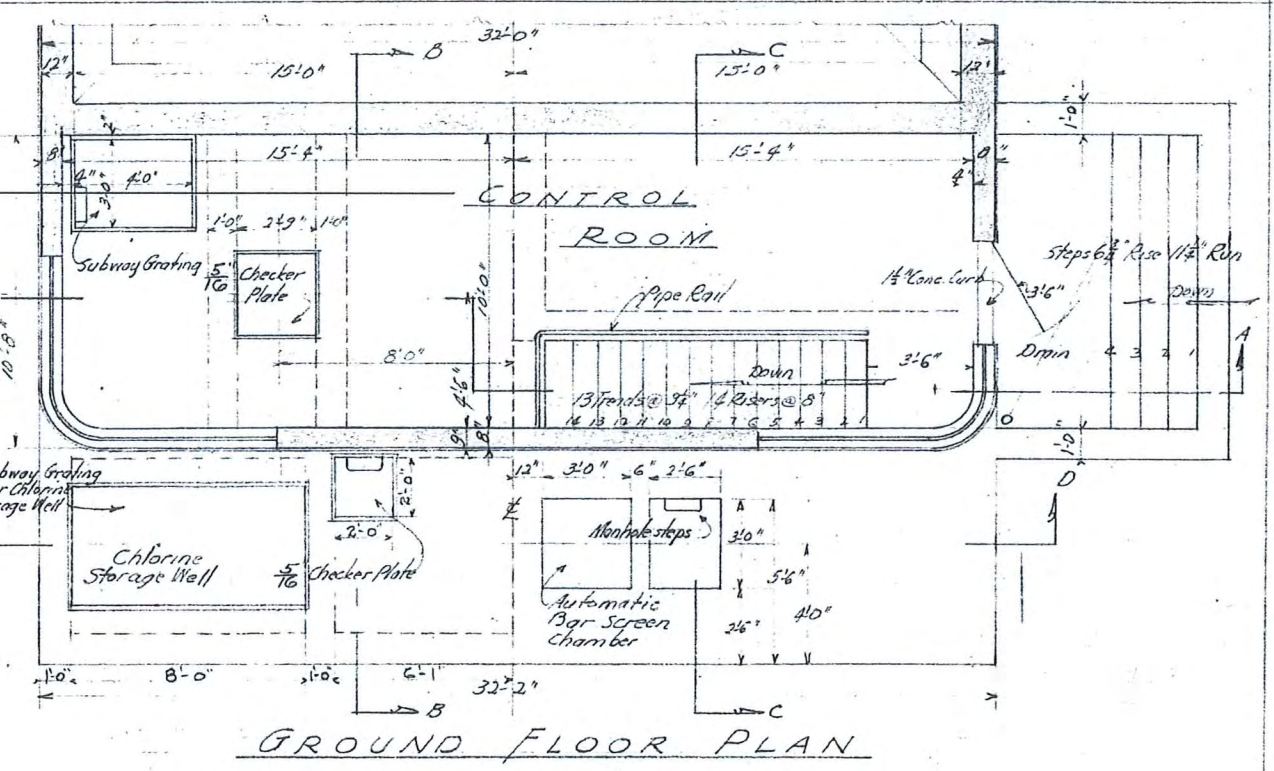 32'-0"
B
C
12"
15'-0"
15'-0"
12"
2"
1'-0"
8"
15'-4"
15'-4"
8"
4"
4'-0"
3'-0"
4"
CONTROL
ROOM
1'-0"
2'-9"
1'-0"
Subway Grating
5/16" Checker
Plate
10'-0"
Pipe Rail
1½" Conc. Curb
3'-6"
Steps 6¾" Rise 11¼" Run
Down
10'-8"
8'-0"
4'-6"
Down
3'-6"
Drain
4 3 2 1
A
13 Treads @ 9¼" 14 Risers @ 8"
14 13 12 11 10 9 8 7 6 5 4 3 2 1
9"
8"
1'-0"
bway Grating
r Chlorine
rage Well
2'-0"
12"
3'-0"
6"
2'-6"
D
2'-0"
℄
Manhole steps
3'-0"
Chlorine
Storage Well
5/16" Checker Plate
5'-6"
4'-0"
Automatic
Bar Screen
Chamber
2'-6"
1'-0"
8'-0"
1'-0"
6'-1"
32'-2"
B
C
GROUND FLOOR PLAN